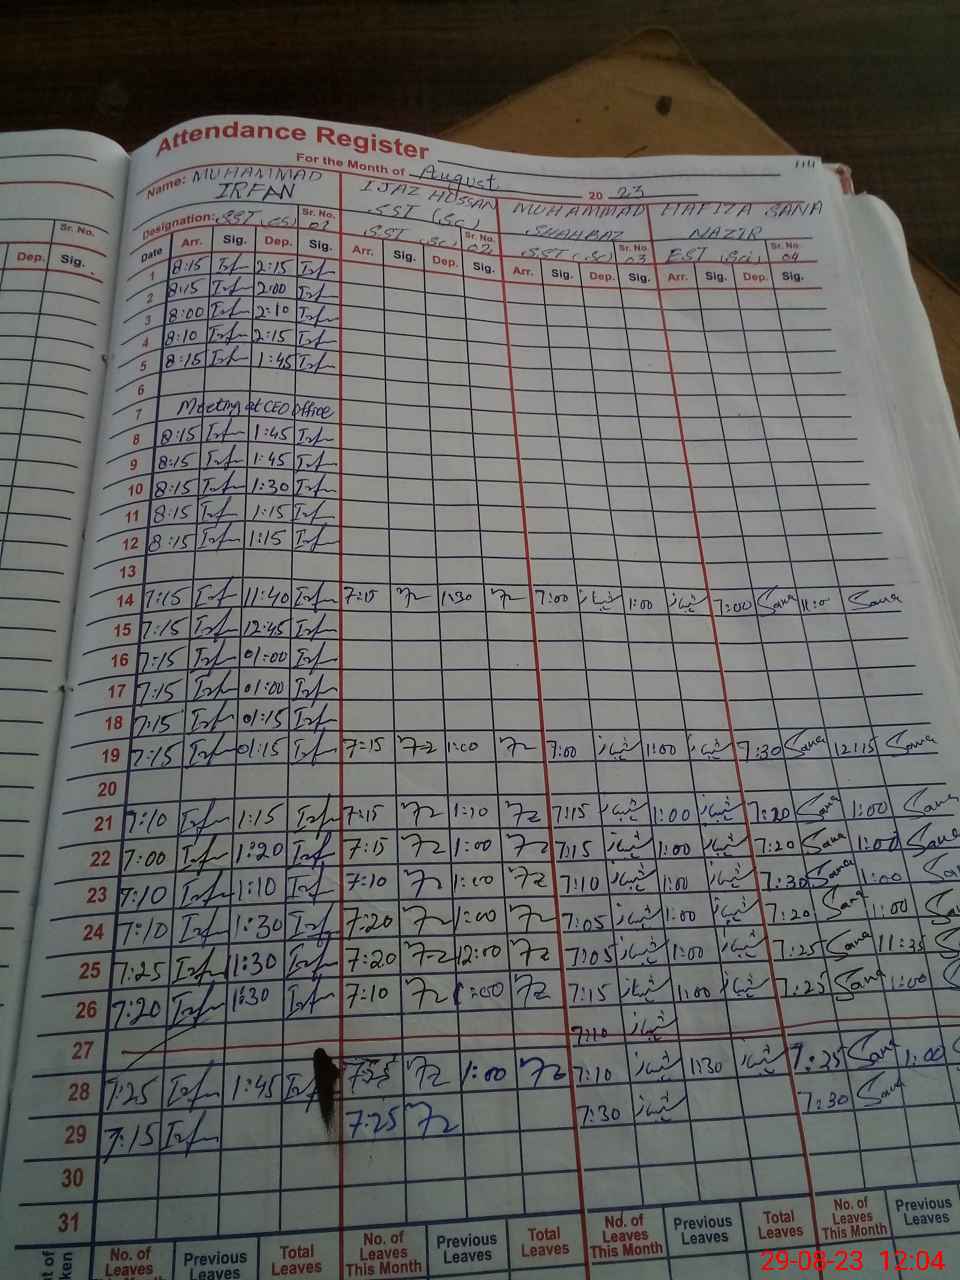 Attendance Register
For the Month of August 2023
Name: MUHAMMAD IRFAN IJAZ HUSSAN SST (SC) MUHAMMAD SHAHBAZ HAFIZA SANA NAZIR
Designation: SST (CS) Sr. No. 01 SST (SC) Sr. No. 02 SST (SC) Sr. No. 03 EST (Sci) Sr. No. 04
Dep. Sig. Sr. No.
Date Arr. Sig. Dep. Sig. Arr. Sig. Dep. Sig. Arr. Sig. Dep. Sig. Arr. Sig. Dep. Sig.
1 8:15 Irfan 2:15 Irfan
2 8:15 Irfan 2:00 Irfan
3 8:00 Irfan 2:10 Irfan
4 8:10 Irfan 2:15 Irfan
5 8:15 Irfan 1:45 Irfan
6
7 Meeting at CEO Office
8 8:15 Irfan 1:45 Irfan
9 8:15 Irfan 1:45 Irfan
10 8:15 Irfan 1:30 Irfan
11 8:15 Irfan 1:15 Irfan
12 8:15 Irfan 1:15 Irfan
13
14 7:15 Irfan 11:40 Irfan 7:15 1:30 7:00 شہباز 1:00 شہباز 7:00 Sana Sana
15 7:15 Irfan 12:45 Irfan
16 7:15 Irfan 01:00 Irfan
17 7:15 Irfan 01:00 Irfan
18 7:15 Irfan 01:15 Irfan
19 7:15 Irfan 01:15 Irfan 7:15 1:00 7:00 شہباز 1:00 شہباز 7:30 Sana 12:15 Sana
20
21 7:10 Irfan 1:15 Irfan 7:15 7:15 شہباز 1:00 شہباز 7:20 Sana 1:00 Sana
22 7:00 Irfan 1:20 Irfan 7:15 1:00 7:15 شہباز 1:00 شہباز 7:20 Sana 1:00 Sana
23 7:10 Irfan 1:10 Irfan 7:10 1:00 7:10 شہباز 1:00 شہباز 7:30 Sana 1:00
24 7:10 Irfan 1:30 Irfan 7:20 1:00 7:05 شہباز 1:00 شہباز 7:20 Sana 1:00
25 7:25 Irfan 1:30 Irfan 7:20 12:00 7:05 شہباز 1:00 شہباز 7:25 Sana 11:35
26 7:20 Irfan 1:30 Irfan 7:10 1:00 7:15 شہباز 1:00 شہباز 7:25 Sana 1:00
27 7:10 شہباز
28 7:25 Irfan 1:45 Irfan 7:25 1:00 7:10 شہباز 1:30 شہباز 7:25 Sana 1:00
29 7:15 Irfan 7:25 7:30 شہباز 7:30 Sana
30
31
No. of Leaves This Month Previous Leaves Total Leaves No. of Leaves This Month Previous Leaves Total Leaves No. of Leaves This Month Previous Leaves Total Leaves No. of Leaves This Month Previous Leaves
29-08-23 12:04